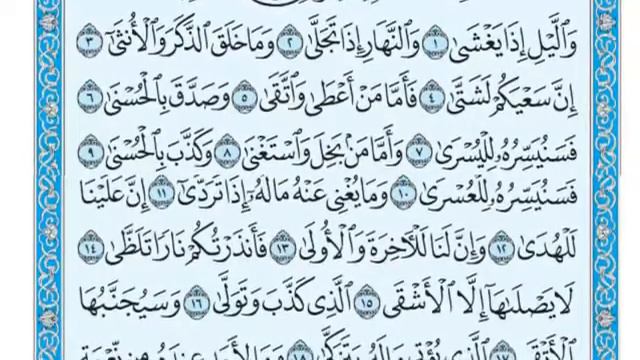 وَٱلَّيۡلِ إِذَا يَغۡشَىٰ ١ وَٱلنَّهَارِ إِذَا تَجَلَّىٰ ٢ وَمَا خَلَقَ ٱلذَّكَرَ وَٱلۡأُنثَىٰٓ ٣
إِنَّ سَعۡيَكُمۡ لَشَتَّىٰ ٤ فَأَمَّا مَنۡ أَعۡطَىٰ وَٱتَّقَىٰ ٥ وَصَدَّقَ بِٱلۡحُسۡنَىٰ ٦
فَسَنُيَسِّرُهُۥ لِلۡيُسۡرَىٰ ٧ وَأَمَّا مَنۢ بَخِلَ وَٱسۡتَغۡنَىٰ ٨ وَكَذَّبَ بِٱلۡحُسۡنَىٰ ٩
فَسَنُيَسِّرُهُۥ لِلۡعُسۡرَىٰ ١٠ وَمَا يُغۡنِي عَنۡهُ مَالُهُۥٓ إِذَا تَرَدَّىٰٓ ١١ إِنَّ عَلَيۡنَا
لَلۡهُدَىٰ ١٢ وَإِنَّ لَنَا لَلۡأٓخِرَةَ وَٱلۡأُولَىٰ ١٣ فَأَنذَرۡتُكُمۡ نَارٗا تَلَظَّىٰ ١٤
لَا يَصۡلَىٰهَآ إِلَّا ٱلۡأَشۡقَى ١٥ ٱلَّذِي كَذَّبَ وَتَوَلَّىٰ ١٦ وَسَيُجَنَّبُهَا
ٱلۡأَتۡقَى ١٧ ٱلَّذِي يُؤۡتِي مَالَهُۥ يَتَزَكَّىٰ ١٨ وَمَا لِأَحَدٍ عِندَهُۥ مِن نِّعۡمَةٖ